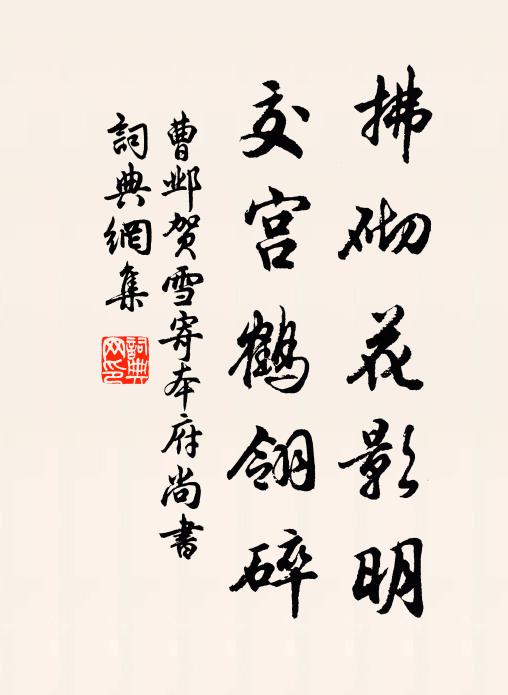 拂砌花影明
交宫鶴翎碎
曹邺贺雪寄本府尚書
詞典網集
詞典网印